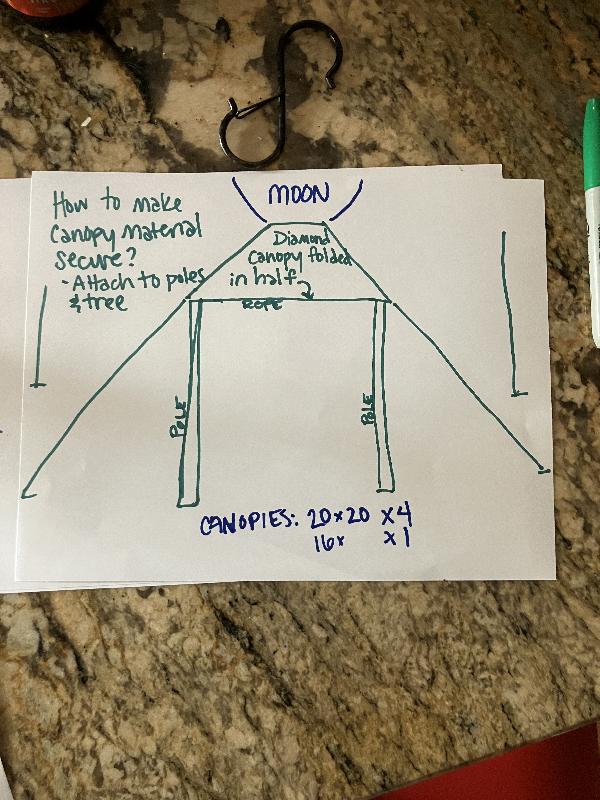 MOON
How to make
Canopy Material
Secure?
- Attach to poles
& tree
Diamond
Canopy folded
in half
ROPE
POLE
POLE
CANOPIES: 20x20 x4
16x x1